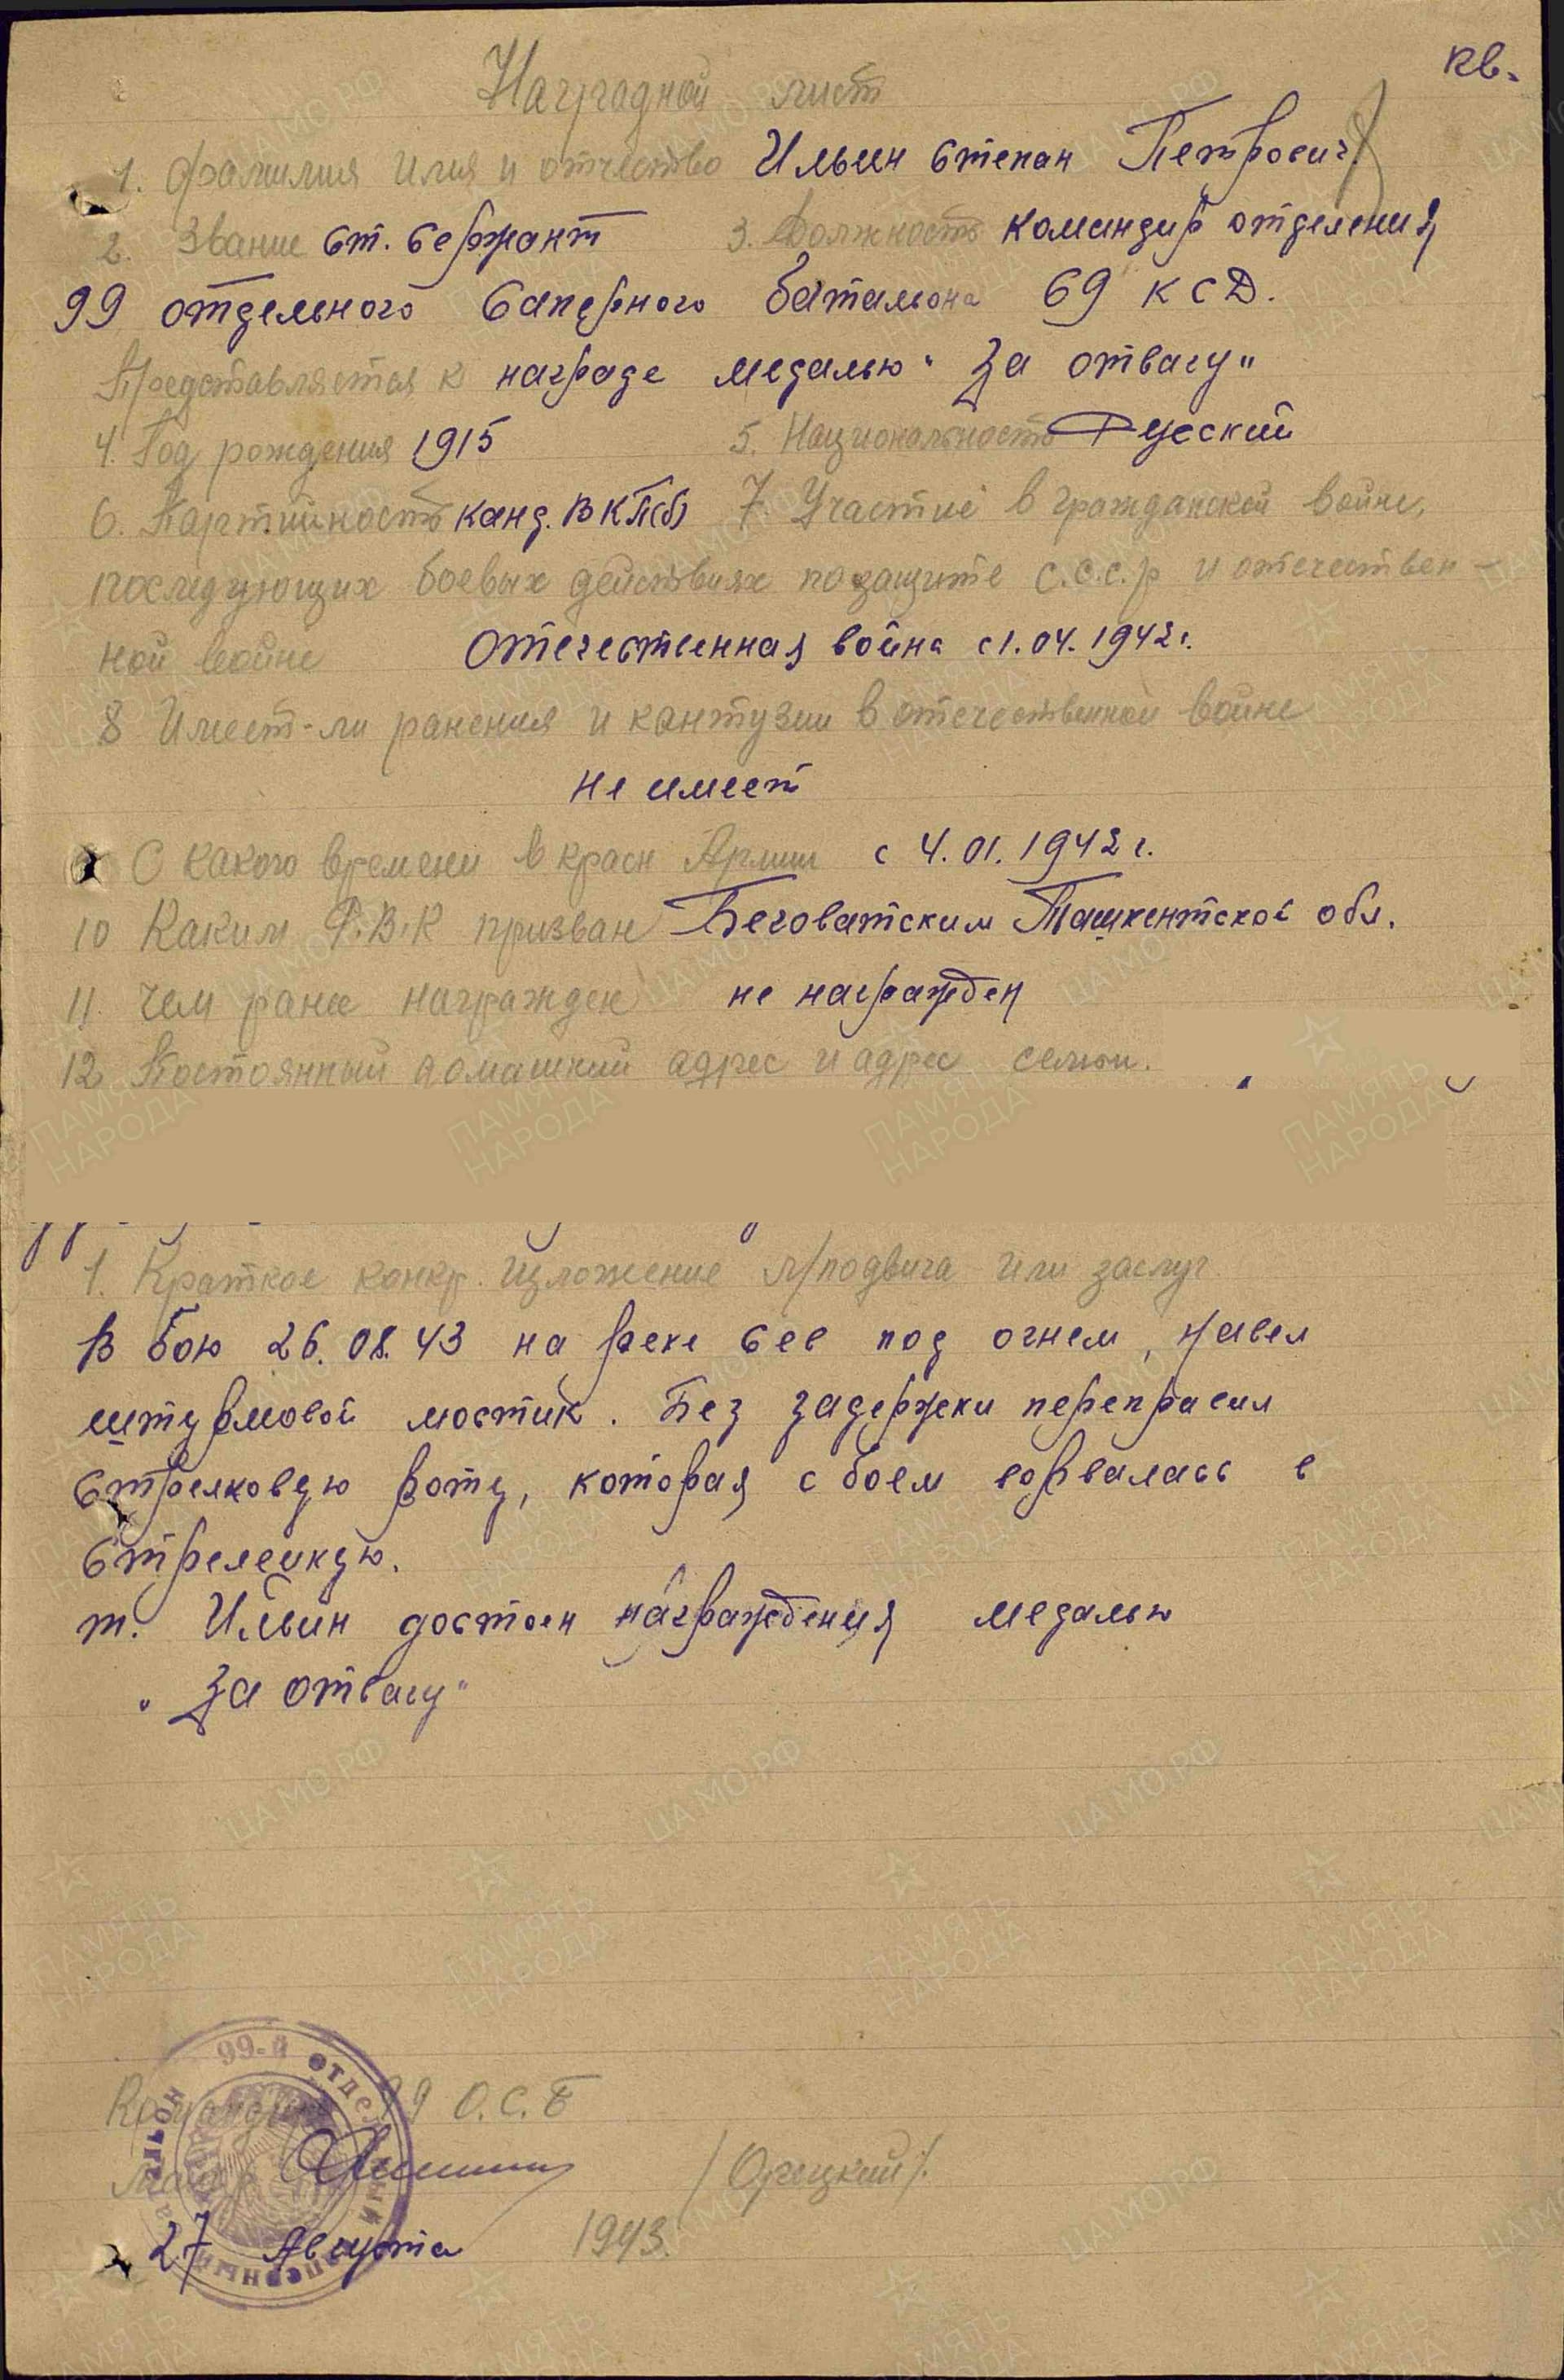 кв.
Наградной лист
1. Фамилия Имя и отчество Ильин Степан Петрович
2. Звание Ст. Сержант 3. Должность командир отделения
99 отдельного Саперного батальона 69 КСД.
Представляется к награде медалью "За отвагу"
4. Год рождения 1915 5. Национальность Русский
6. Партийность канд. ВКП(б) 7. Участие в гражданской войне,
последующих боевых действиях по защите С.С.С.Р и отечествен-
ной войне Отечественная война с 1.04.1942 г.
8 Имеет-ли ранения и кантузии в отечественной войне
не имеет
С какого времени в красн Армии с 4.01.1942 г.
10 Каким Р.В.К призван Беговатским Ташкентской обл.
11. Чем ранее награжден не награжден
12 Постоянный домашний адрес и адрес семьи.
1. Краткое конкр. Изложение л/подвига или заслуг
В бою 26.08.43 на реке Сев под огнем, навел
штурмовой мостик. Без задержки переправил
Стрелковую роту, которая с боем ворвалась в
Стрелецкую.
т. Ильин достоен награждения медалью
"За отвагу"
99-й отдельный саперный батальон
Командир 99 О.С.Б
Майор /Орецкий/.
27 Августа 1943.